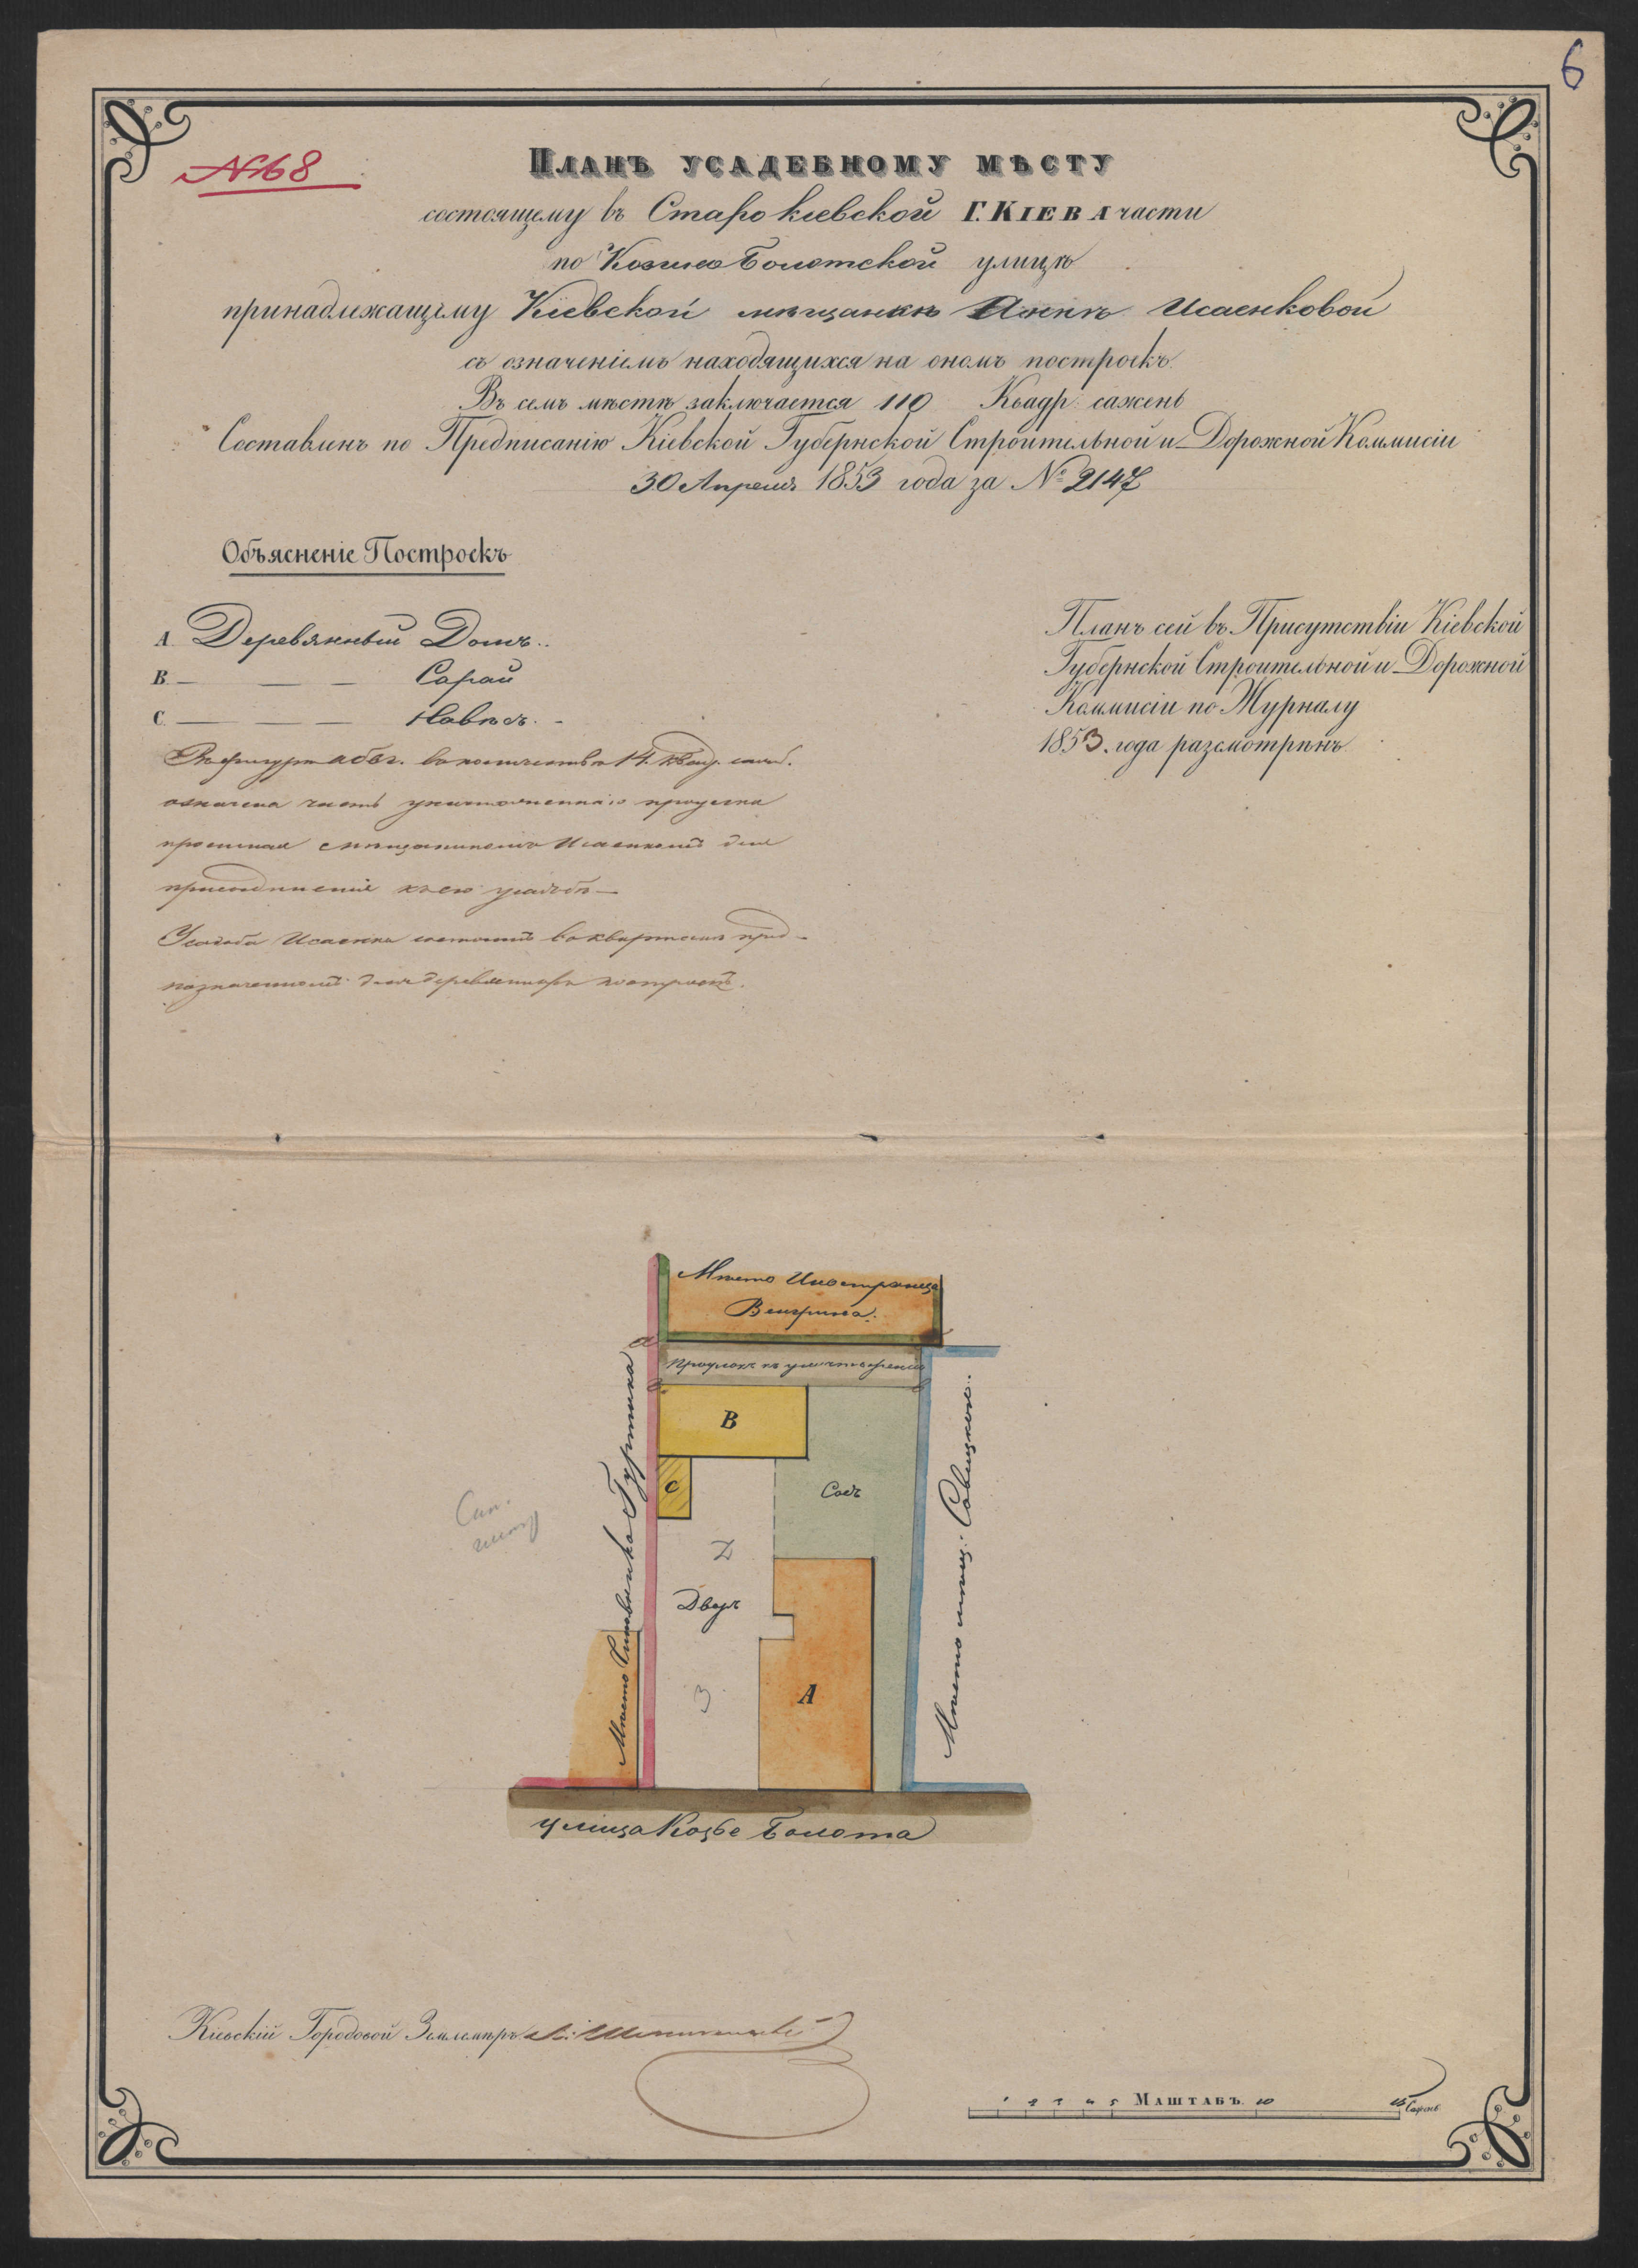 6
№ 168
Планъ усадебному мѣсту
состоящему въ Старокіевской Г. Кіева части
по Козьеболотской улицѣ
принадлежащему Кіевской мѣщанкѣ Аннѣ Исаенковой
съ означеніемъ находящихся на ономъ построекъ.
Въ семъ мѣстѣ заключается 110 Квадр: сажень
Составленъ по Предписанію Кіевской Губернской Строительной и Дорожной Коммисіи
30 Апреля 1853 года за № 2147
Объясненіе Построекъ
А. Деревянный Домъ..
В. — — — Сарай
С. — — — Навѣсъ. -
План сей въ Присутствіи Кіевской
Губернской Строительной и Дорожной
Коммисіи по Журналу
1853. года разсмотрѣнъ.
Въ фигурѣ абвг. въ количествѣ 14. Квад. саж.
означена часть уничтоженнаго проулка
просимая мѣщаниномъ Исаенкомъ для
присоединенія къ его усадьбѣ —
Усадьба Исаенка состоитъ въ кварталѣ пред-
назначенномъ для деревянныхъ построекъ.
Мѣсто Иностранца
Венгрина.
а
Проулокъ къ уничтоженію
В
С
Садъ
Дворъ
З
А
Мѣсто Гуртика
Мѣсто мѣщ. Савицкаго.
улица Козье Болото
Кіевскій Городовой Землемѣръ
1 2 3 4 5 Маштабъ. 10 15 Сажень